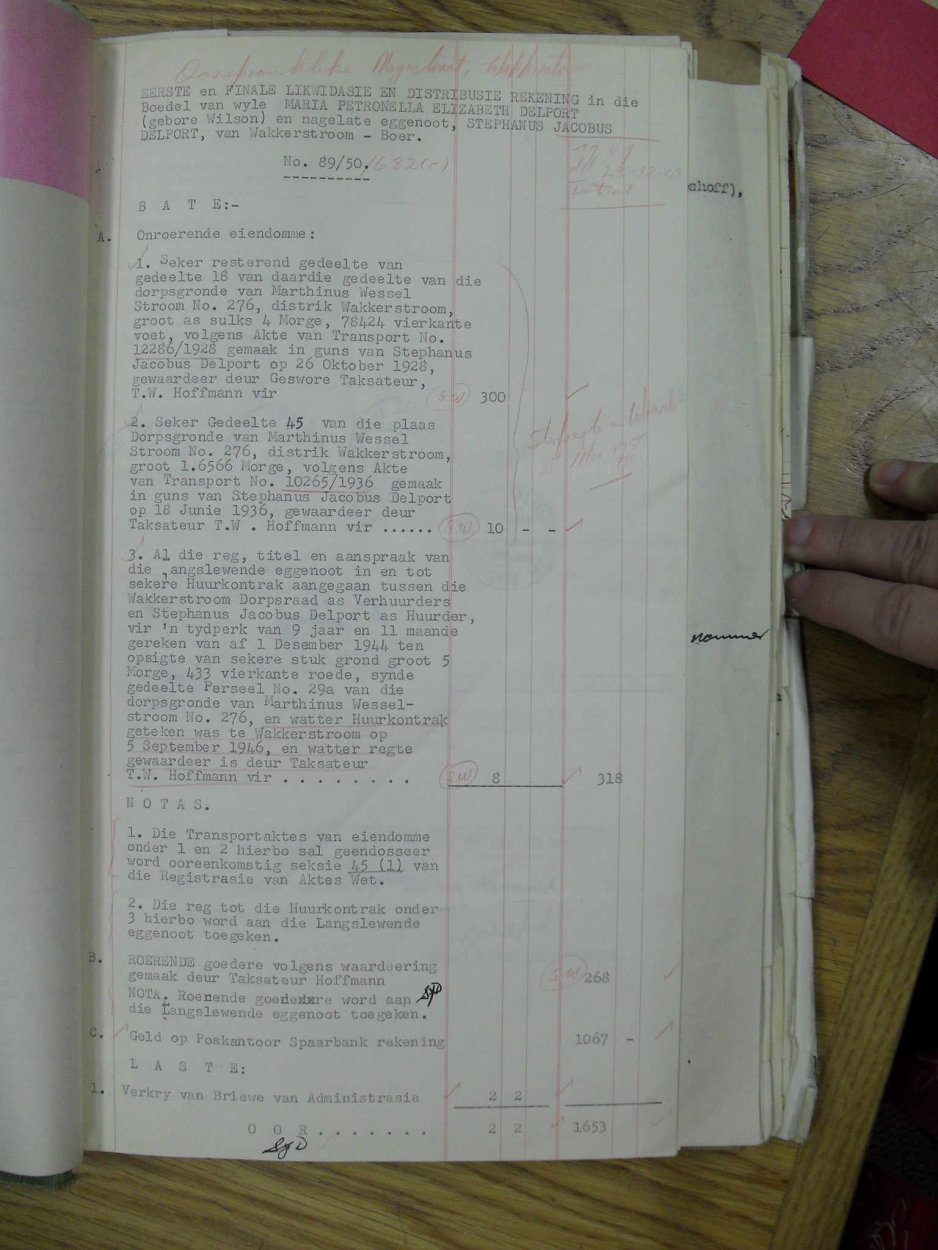 Oorspronklike Magistraat, Wakkerstroom
EERSTE en FINALE LIKWIDASIE EN DISTRIBUSIE REKENING in die
Boedel van wyle MARIA PETRONELLA ELIZABETH DELPORT
(gebore Wilson) en nagelate eggenoot, STEPHANUS JACOBUS
DELPORT, van Wakkerstroom - Boer.
No. 89/50.
shoff),
B A T E:-
A. Onroerende eiendomme:
1. Seker resterend gedeelte van
gedeelte 18 van daardie gedeelte van die
dorpsgronde van Marthinus Wessel
Stroom No. 276, distrik Wakkerstroom,
groot as sulks 4 Morge, 78424 vierkante
voet, volgens Akte van Transport No.
12286/1928 gemaak in guns van Stephanus
Jacobus Delport op 26 Oktober 1928,
gewaardeer deur Geswore Taksateur,
T.W. Hoffmann vir SW 300
2. Seker Gedeelte 45 van die plaas
Dorpsgronde van Marthinus Wessel
Stroom No. 276, distrik Wakkerstroom,
groot 1.6566 Morge, volgens Akte
van Transport No. 10265/1936 gemaak
in guns van Stephanus Jacobus Delport
op 18 Junie 1936, gewaardeer deur
Taksateur T.W . Hoffmann vir ...... SW 10 - -
3. Al die reg, titel en aanspraak van
die angslewende eggenoot in en tot
sekere Huurkontrak aangegaan tussen die
Wakkerstroom Dorpsraad as Verhuurders
en Stephanus Jacobus Delport as Huurder,
vir 'n tydperk van 9 jaar en 11 maande
gereken van af 1 Desember 1944 ten
opsigte van sekere stuk grond groot 5
Morge, 433 vierkante roede, synde
nommer
gedeelte Perseel No. 29a van die
dorpsgronde van Marthinus Wessel-
stroom No. 276, en watter Huurkontrak
geteken was te Wakkerstroom op
5 September 1946, en watter regte
gewaardeer is deur Taksateur
T.W. Hoffmann vir . . . . . . . . SW 8 318
N O T A S.
1. Die Transportaktes van eiendomme
onder 1 en 2 hierbo sal geendosseer
word ooreenkomstig seksie 45 (1) van
die Registrasie van Aktes Wet.
2. Die reg tot die Huurkontrak onder
3 hierbo word aan die Langslewende
eggenoot toegeken.
B. ROERENDE goedere volgens waardeering
gemaak deur Taksateur Hoffmann SW 268
NOTA. Roerende goedere word aan
die Langslewende eggenoot toegeken.
C. Geld op Poskantoor Spaarbank rekening 1067 -
L A S T E:
1. Verkry van Briewe van Administrasie 2 2
O O R . . . . . . . 2 2 1653
SJD